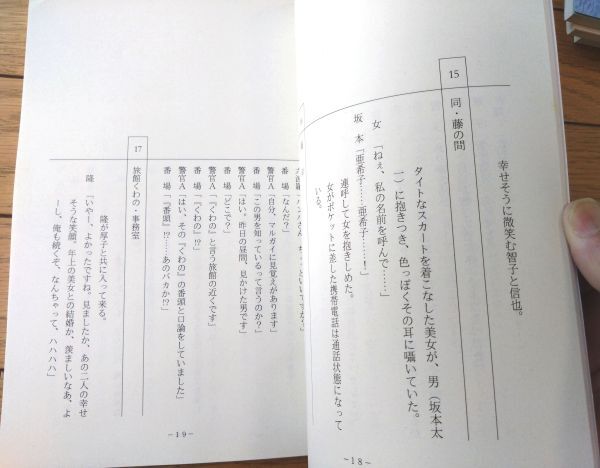 幸せそうに微笑む智子と信也。
15
同・藤の間
タイトなスカートを着こなした美女が、男（坂本太
一）に抱きつき、色っぽくその耳に囁いていた。
女「ねぇ、私の名前を呼んで……」
坂本「亜希子……亜希子……！」
連呼して女を抱きしめた。
女がポケットに差した携帯電話は通話状態になって
いる。
－18－
番場「なんだ？」
警官A「自分、マルガイに見覚えがあります」
番場「この男を知っているって言うのか？」
警官A「はい。昨日の昼間、見かけた男です」
番場「どこで？」
警官A「『くわの』と言う旅館の近くです」
番場「『くわの』!?」
警官A「はい、その『くわの』の番頭と口論をしていました」
番場「『番頭』!?……あのバカか!?」
17
旅館くわの・事務室
隆が厚子と共に入って来る。
隆「いやー、よかったですね、見ましたか、あの二人の幸せ
そうな笑顔。年上の美女との結婚か、羨ましいなあ、よ
ーし、俺も続くぞ、なんちゃって、ハハハハ」
－19－